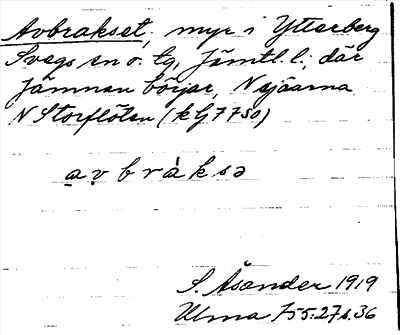 Avbrakset, myr i Ytterberg
Svegs sn o. tg, Jämtl. l.; där
Jämnan börjar, N sjöarna
N Storflöten (kG 7750)
a v b r à k s ə
S. Åsander 1919
Ulma 155:27 s. 36